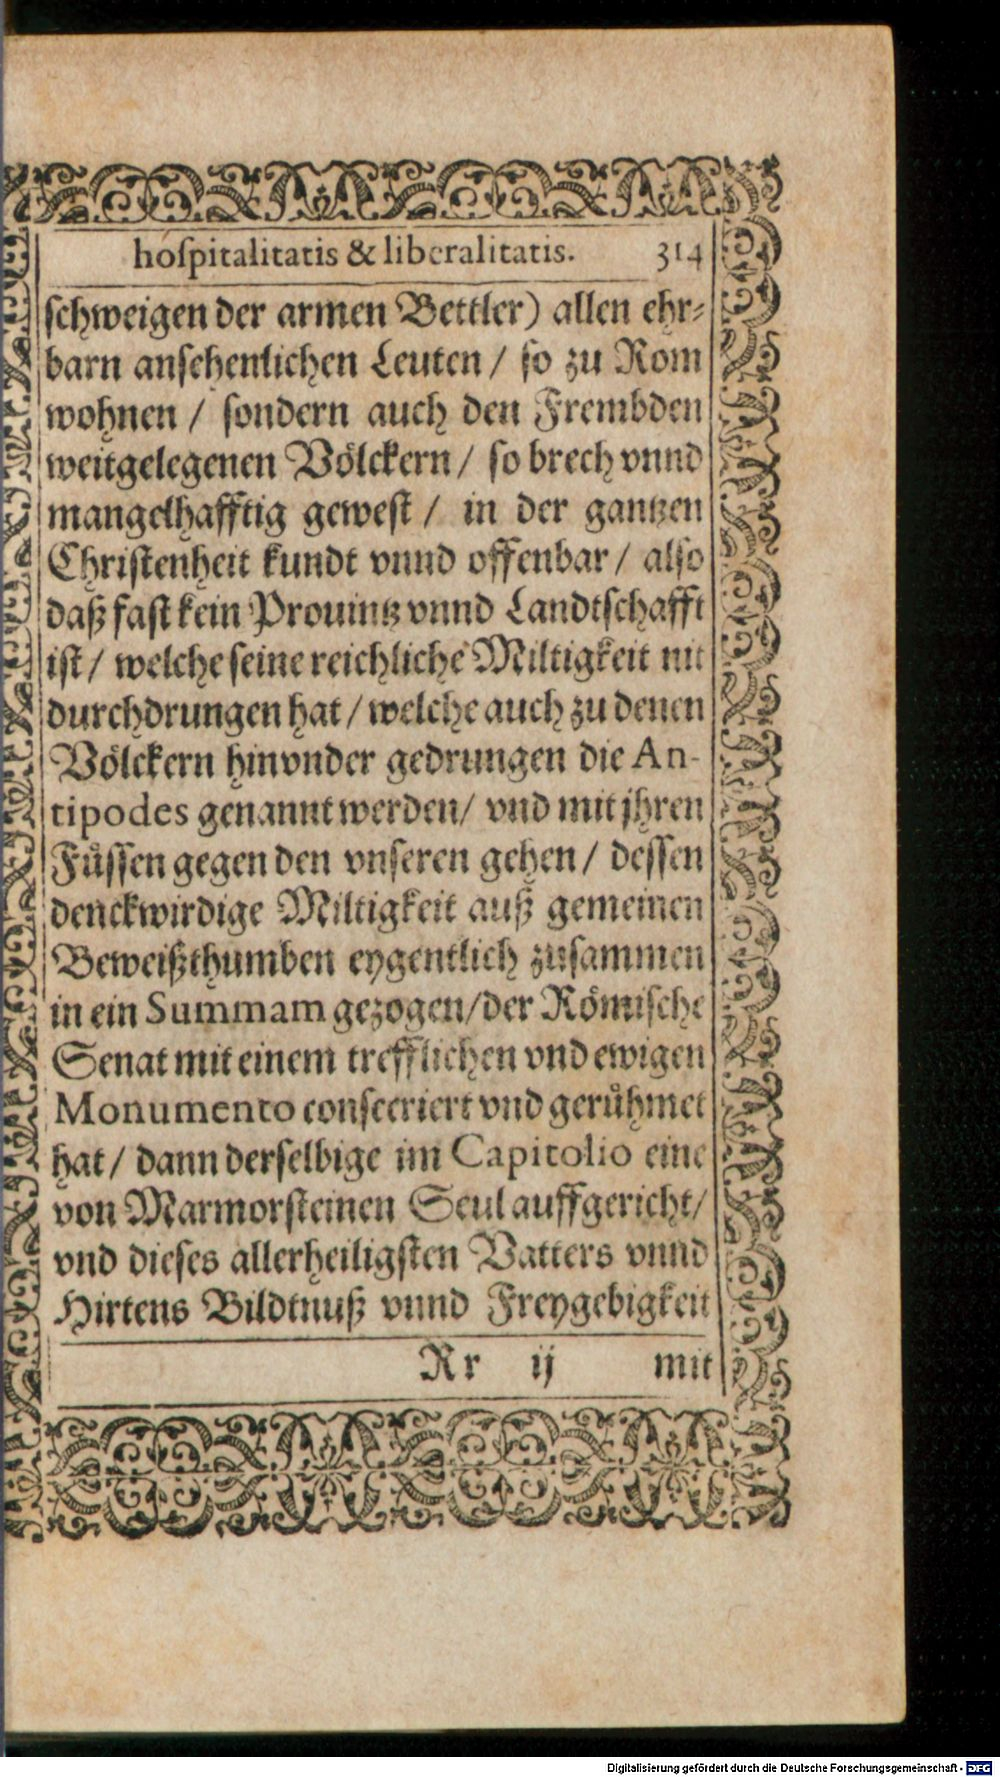 hospitalitatis & liberalitatis. 314
schweigen der armen Bettler) allen ehr⸗
barn ansehenlichen Leuten / so zu Rom
wohnen / sondern auch den Frembden
weitgelegenen Völckern / so brech vnnd
mangelhafftig gewest / in der gantzen
Christenheit kundt vnnd offenbar / also
daß fast kein Prouintz vnnd Landtschafft
ist / welche seine reichliche Miltigkeit nit
durchdrungen hat / welche auch zu denen
Völckern hinvnder gedrungen die An-
tipodes genannt werden / vnd mit jhren
Füssen gegen den vnseren gehen / dessen
denckwirdige Miltigkeit auß gemeinen
Beweißthumben eygentlich zusammen
in ein Summam gezogen / der Römische
Senat mit einem trefflichen vnd ewigen
Monumento consecriert vnd gerühmet
hat / dann derselbige im Capitolio eine
von Marmorsteinen Seul auffgericht /
vnd dieses allerheiligsten Vatters vnnd
Hirtens Bildtnuß vnnd Freygebigkeit
Rr ij mit
Digitalisierung gefördert durch die Deutsche Forschungsgemeinschaft - DFG